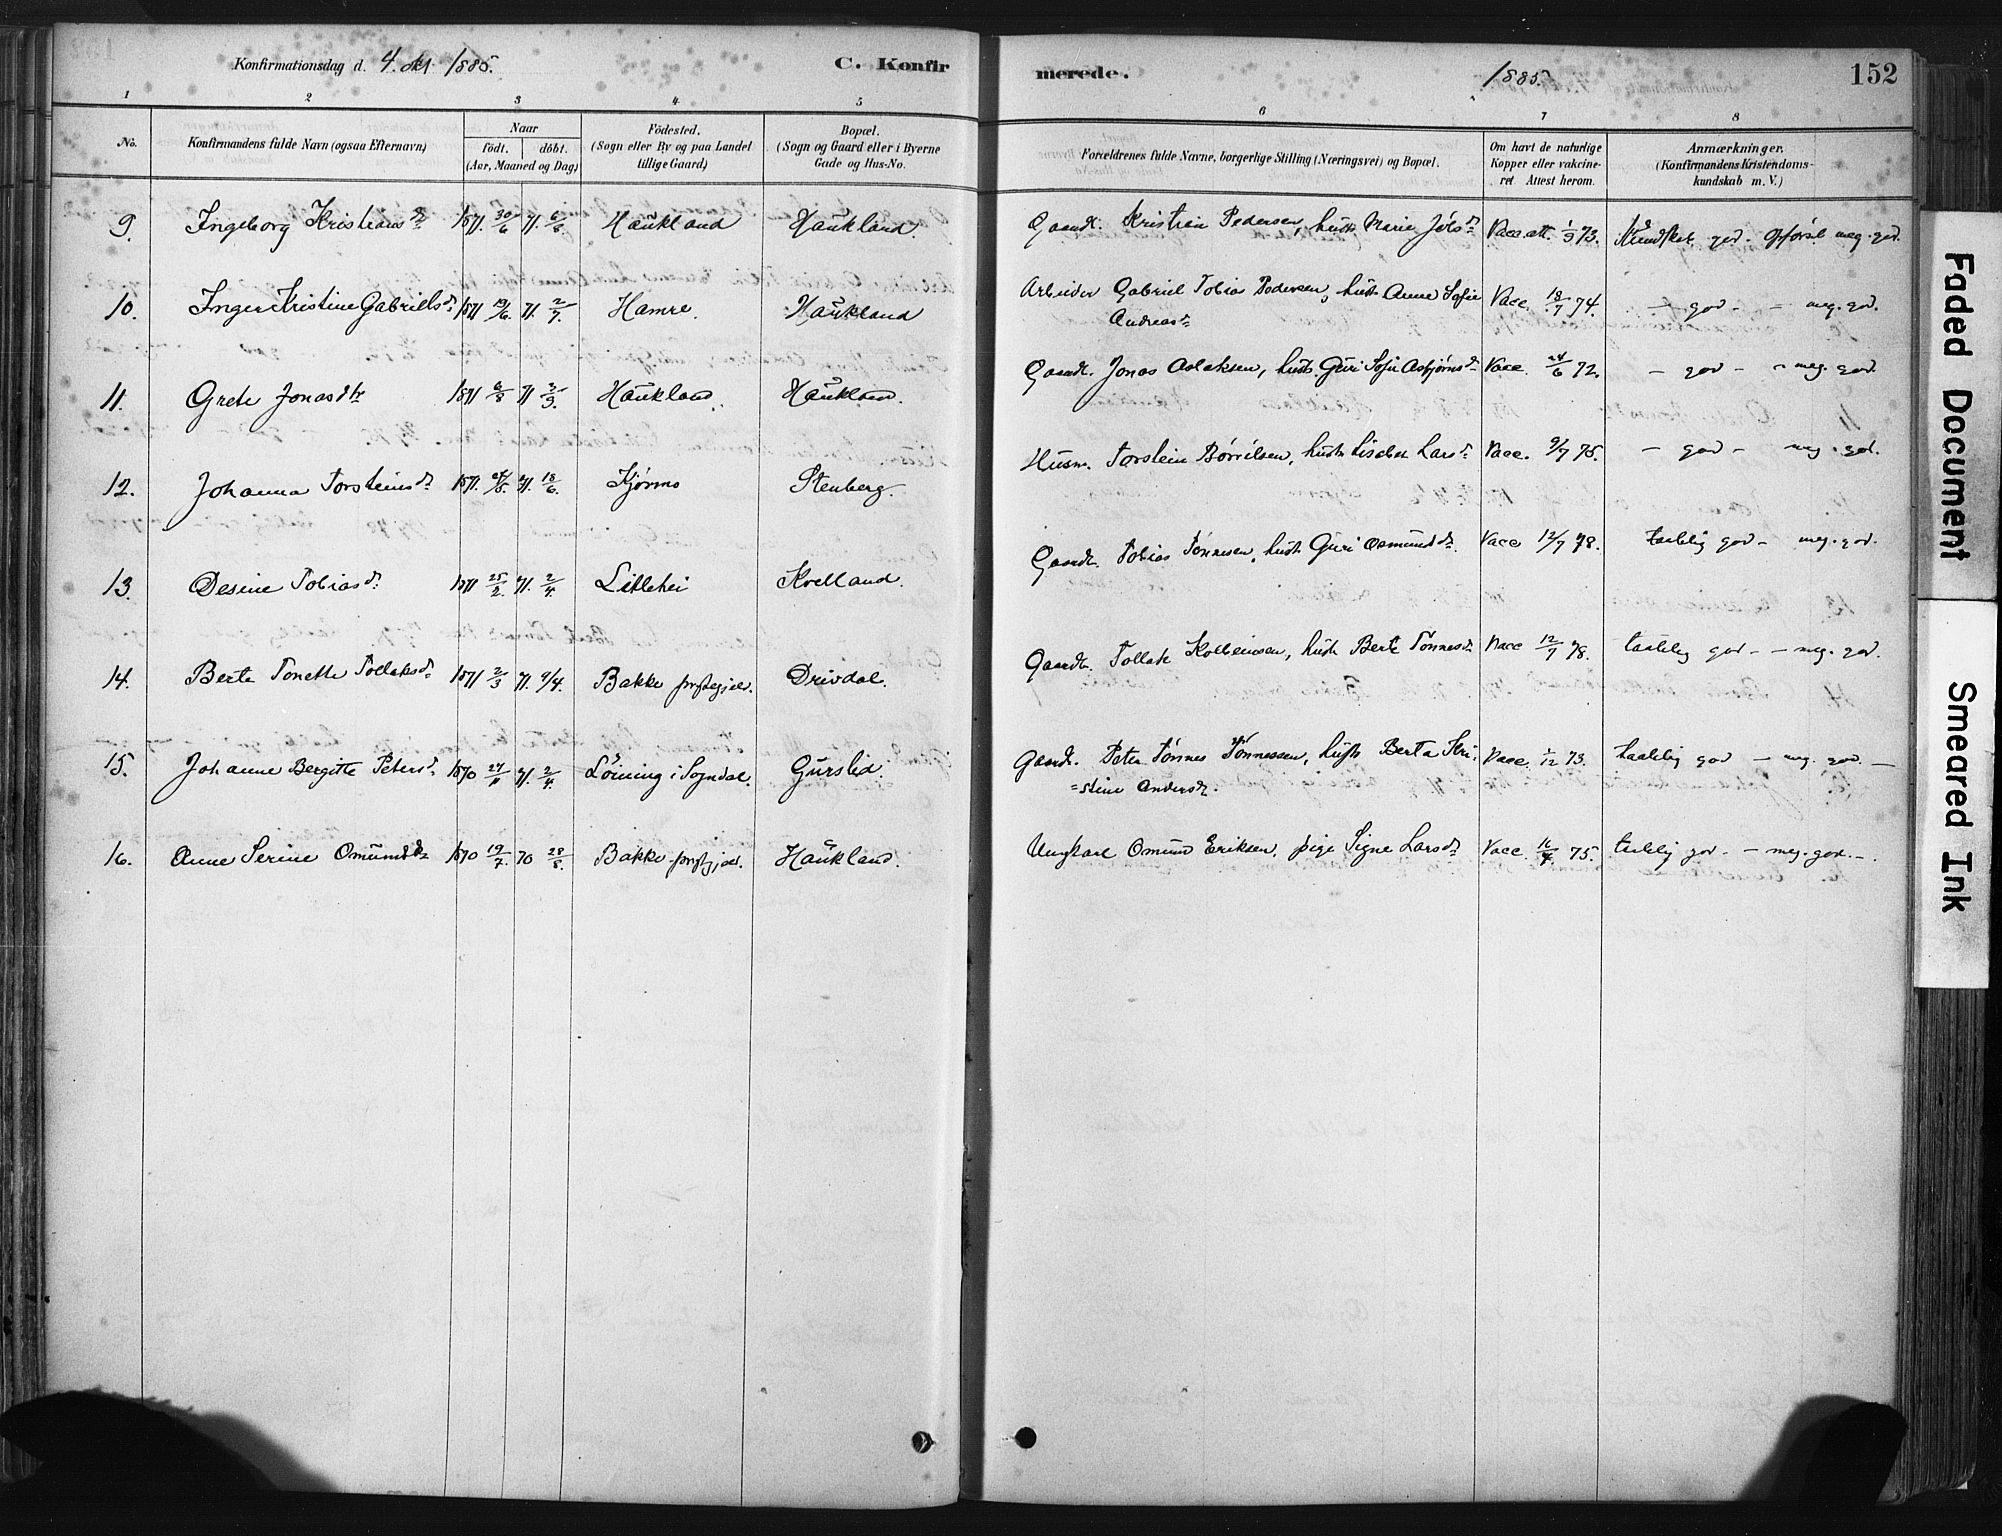 Konfirmationsdag d. 4. Okt 1885. C. Konfirmerede. 1885. 152
1 2 3 4 5 6 7 8
No. Konfirmandens fulde Navn (ogsaa Efternavn) Naar født. døbt. (Aar, Maaned og Dag) Fødested. (Sogn eller By og paa Landet tillige Gaard) Bopæl. (Sogn og Gaard eller i Byerne Gade og Hus-No. Forældrenes fulde Navne, borgerlige Stilling (Næringsvei) og Bopæl. Om havt de naturlige Kopper eller vakcineret. Attest herom. Anmærkninger. (Konfirmandens Kristendomskundskab m. V.)
9. Ingeborg Kristiansdr 1871. 30/6 71. 6/8 Haukland Haukland. Gaardr. Kristian Pedersen, hustr. Marie Jobsdr Vacc. att. 1/9 73. Kundsk. god. Opførsel meg. god.
10. Inger Kristine Gabrielsdr 1871 19/6. 71. 2/7. Hamre. Haukland Arbeider Gabriel Tobias Pedersen, hustr. Anne Sofie
Andreasdr Vacc. 18/7 74. - god - - meg. god.
11. Grete Jonasdtr 1871 6/8 71 3/9. Haukland. Haukland. Gaardr. Jonas Aslaksen, hustr. Guri Sofie Asbjørnsdr Vacc. 24/6 72. - god - - meg. god.
12. Johanna Torsteinsdr 1871. 71. 18/6. Kjørmo Stenberg. Husm. Torstein Børrilsen, hustr. Lisebet Larsdr Vacc. 9/7 75. - god - meg. god.
13. Desine Tobiasdr. 1871 25/2. 71. 2/4. Litlehei Kvelland. Gaardr. Tobias Tønnesen, hustr. Guri Osmundsdr. Vacc 12/7 78. taalelig god - meg. god.
14. Berte Tonette Tollaksdr 1871 2/3 71. 9/4. Bakke prstegjeld. Drivdal. Gaardr. Tollak Kolbeinsen, hustr. Berte Tønnesdr Vacc 12/7 78. taalelig god - - meg. god.
15. Johanne Bergitte Petersdr 1870 27/11 71. 2/4. Løining i Sogndal. Gursled. Gaardr. Peter Tønnes Tønnessen, hustr. Berta Kri=
=stine Andersdr. Vacc. 1/12 73. taalelig god - meg. god. -
16. Anne Serine Omundsdr 1870 19/7. 70 28/8. Bakke prstgjæld. Haukland. Ungkarl Omund Eriksen, pige Signe Larsdr Vacc. 16/4. 75. taalelig god. - meg. god. -.
Faded Document
Smeared Ink